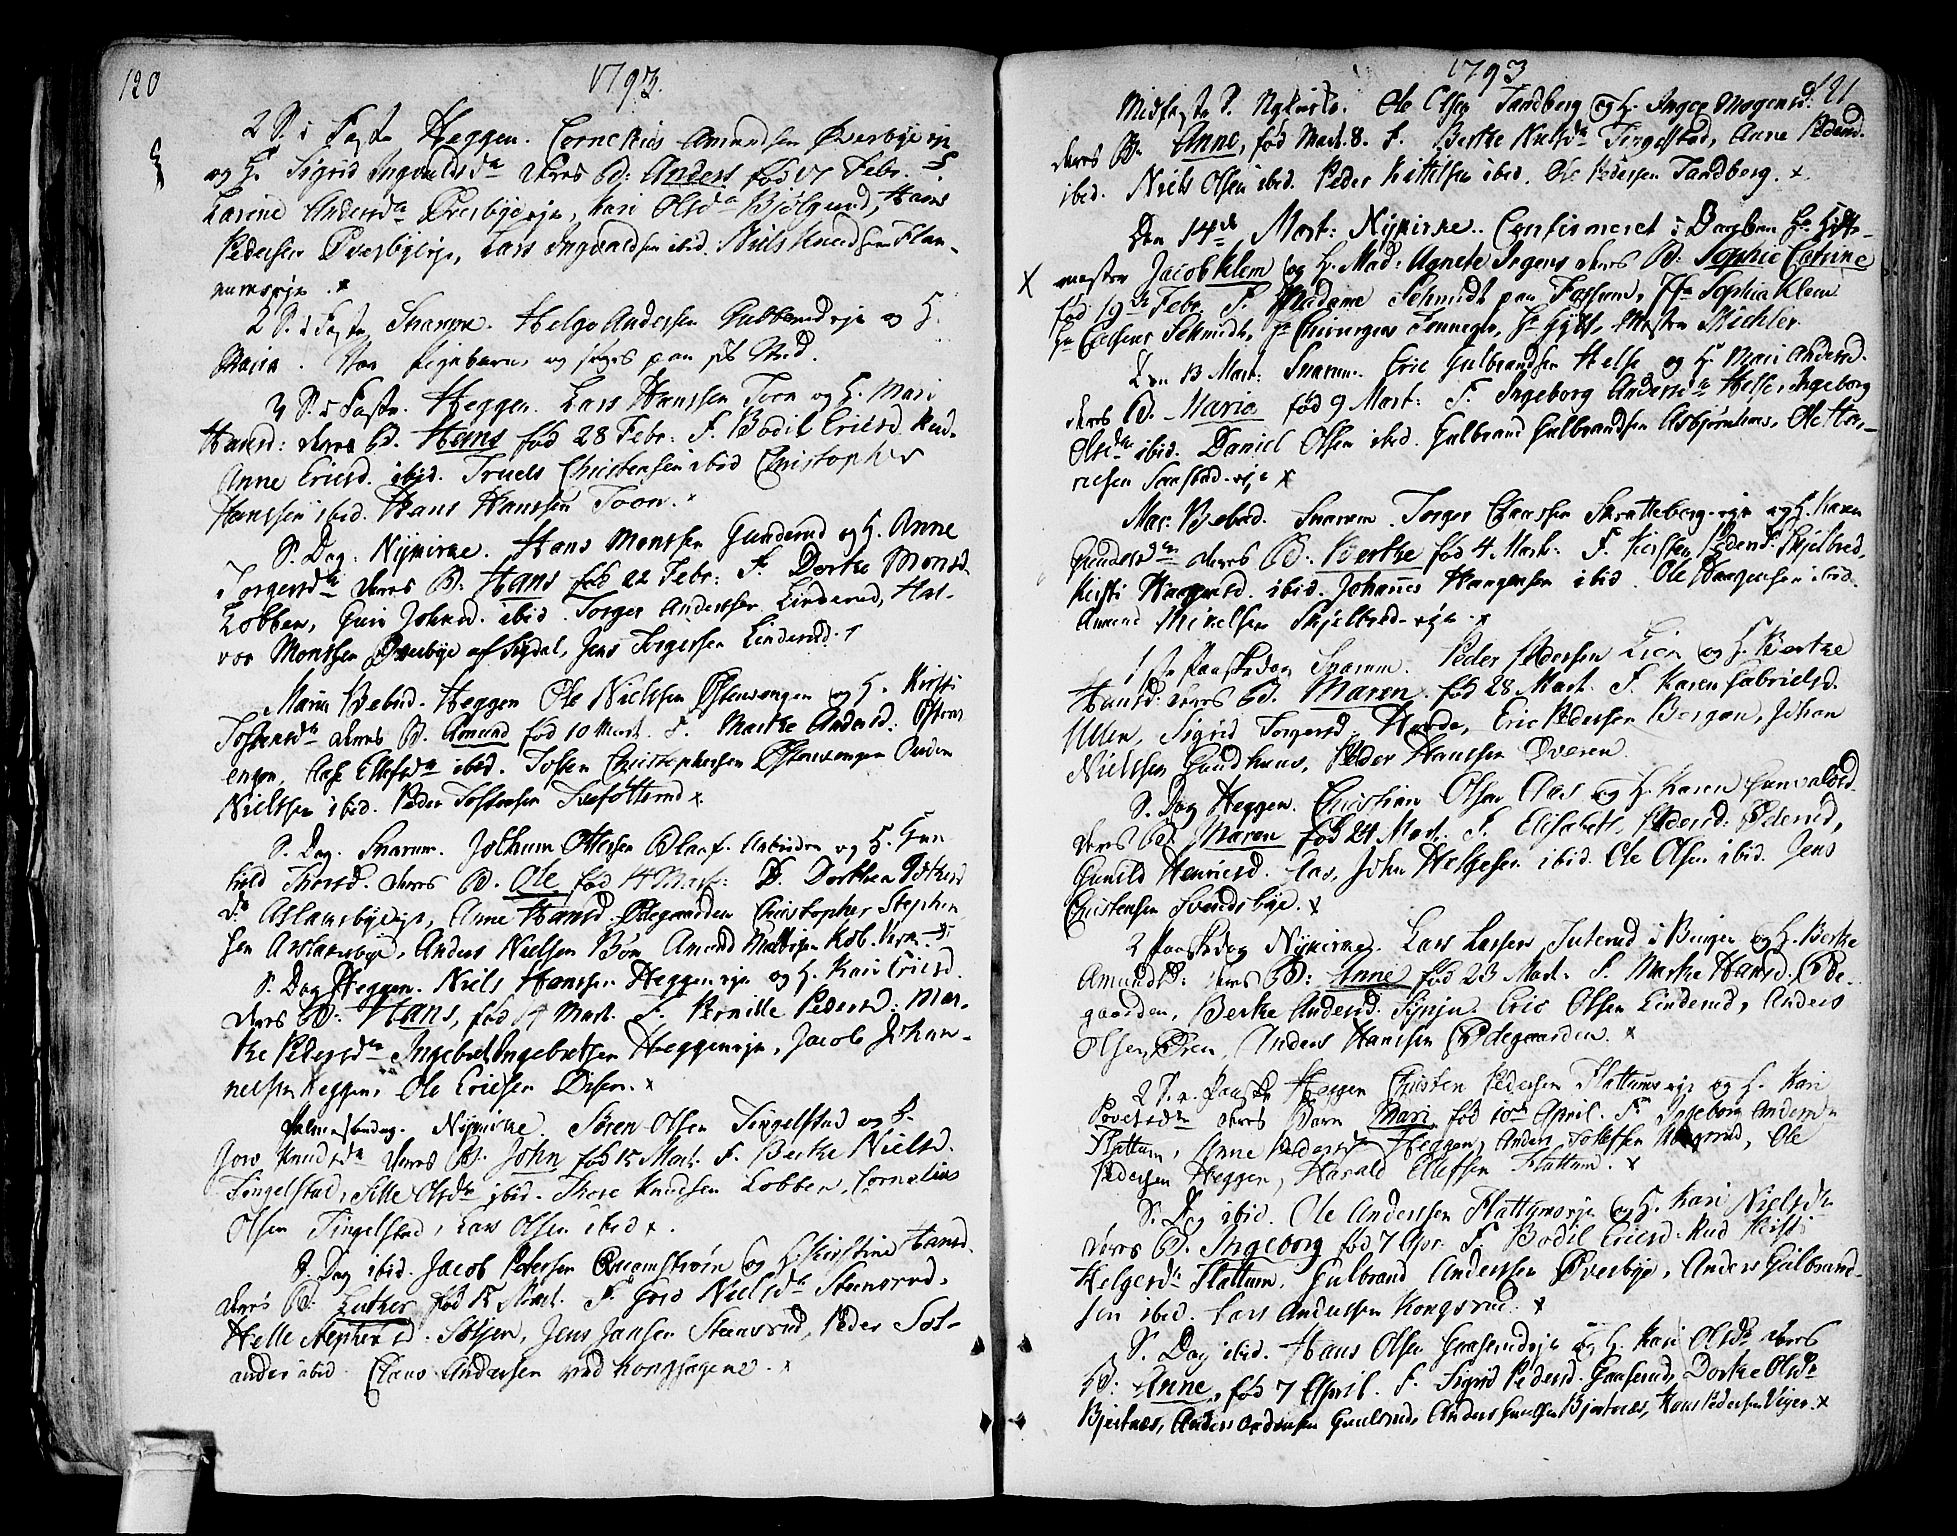 120
1793.
2 S. i Faste Heggen. Cornelius Amundsen Øverbye eje
og H. Sigrid Ingvaldsda deres B: Anders fød 17 Febr. F.
Larene Andersda Øverbye eje, Kari Olsda Bjølgerud, Hans
Pedersen Øverbyeeje, Lars Ingvaldsen ibid. Niels Knudsen Flan-
numseje. x
2 S. i Faste Snarum. Helge Andersen Gubberudeje og H.
Maria. Var pigebarn, og siges paa sit Sted.
3 S. i Faste. Heggen. Lars Hanssen Toen og H. Mari
Hansd: deres B. Hans fød 28 Febr: F. Bodil Ericsd Rud.
Anne Ericsd. ibid. Truels Christensen ibid Christopher
Hanssen ibid. Hans Hanssen Toen.
S. Dag. Nykirke. Hans Monssen Gunderud og H. Anne
Torgersda deres B: Hans fød 22 Febr: F. Dorthe Monsd.
Lobben, Guri Johnsd. ibid. Torger Anderssen Linderud, Hal-
vor Monssen Øverbye af Sigdal, Jens Torgersen Linderud.
Mariæ Bebud. Heggen Ole Nielssen Østenvengen og H. Kirsti
Tostensda deres B. Amund fød 10 Mart. F. Marthe Andersd: Østen-
engen, Aase Ellefsda ibid. Tosten Christophersen Østenvengen Anders
Nielssen ibid. Peder Tostensen Træfotterud x.
S. Dag. Snarum. Jokum Ottesen Blaaf. Arbeider og H. Gun
hild Thorsd. deres B. Ole fød 14 Mart: F. Dorthea
da Aslaksbyeeje, Anne Hansd. Ødegaarden Christopher Stephen
sen Aslaksbye, Anders Nielsen Bøn Amund Mattisen
S. Dag Heggen. Niels Hanssen Heggenseje og H. Kari Ericsd.
deres B: Hans, fød Mart. F. Pernille Pedersd: Mar-
the Pedersda Ingebret Ingebretsen Heggenseje, Jacob Johan-
nessen Heggen, Ole Ericsen Disen. x
Palmesøndag. Nykirke. Søren Olsen Tingelstad og H.
Goro Knudsda deres B. John fød 15 Mart. F. Berthe Nielsd.
Tingelstad, Sille Olsda ibid. Thore Knudsen Lobben, Cornelius
Olsen Tingelstad, Lars Olsen ibid x.
S. Dag ibid. Jacob Petersen Qvamstrøm og H. Kirstine Hansd.
deres B. Luther fød 15 Mart. F. Goro Nielsda Steensrud,
Helle Stephensd. Jens Jansen Steensrud, Peder Sol-
ander ibid. Claus Andersen ved Kongssagene. x
1793
121
Midfaste S. Nykirke. Ole Olsen Tandberg og H. Inger Mogensd:
deres B. Anne, fød Mart. 8. F. Berthe Nielsda Tingelstad, Anne Pedersd.
ibid. Niels Olsen ibid. Peder Kittilsen ibid. Ole Pedersen Tandberg. x.
Den 14de Mart: Nykirke. Confirmeret i Daaben Hr Hytte-
mester Jacob Klem og H. Mad: Agnete Irgens deres B: Sophie Catrine
fød 19de Febr. F. Madame Schmidt paa Fossum, Sophia Klem
Hr Schmidt, Hr Chirurgus Hr Hytte Mester Michler.
Den 13 Mart: Snarum. Eric Gulbrandsen Helle og H. Mari Andersd.
deres B. Maria fød 9 Mart: F. Ingeborg Andersda Helle, Ingeborg
Olsda ibid. Daniel Olsen ibid. Gulbrand Gulbrandsen Asbjørnhuus, Ole Hen-
ricsen Sonstad eje x
Mar. Bebud. Snarum. Torger Claussen Skratteberg eje og H. Karen
Gundersda deres B: Berthe fød 4 Mart: F. Kirsten Pedersd: Skjelbred,
Kirsti Haagensd. ibid. Johannes Haagensen ibid. Ole Haagensen ibid.
Amund Mikelsen Skjelbred eje x
1ste Paaskedag Snarum. Peder Pedersen Lien og H. Berthe
Hansd: deres B. Maren fød 28 Mart. F. Karen Gabrielsd.
Ulen, Sigrid Torgersd. Horde, Eric Pedersen Bergan, Johan
Nielssen Gundhuus, Peder Hanssen Overen.
S. Dag Heggen. Christian Olsen Aas og H. Karen Gunvaldsd.
deres B. Maren fød 24 Mart. F. Elisabeth Pedersd:
Gunild Henricsd. Aas, John Helgesen ibid. Ole Olsen ibid. Jens
Christensen Svendsbye. x
2 Paaskedag Nykirke. Lars Larssen Juterud i Bingen og H. Berthe
Amundsd: deres B: Anne fød 23 Mart. F. Marthe Hansd. Øde-
gaarden, Berthe Andersd. Eric Olsen Linderud, Anders
Olsen Øren, Anders Hanssen Ødegaarden. x
2 P. Paaske Heggen Christen Pedersen Flattums eje og H. Kari
Povelsda deres Barn Mari fød 10de April. F. Ingeborg Andersda
Flattum, Anne Pedersd Heggen, Anders Ole
Pedersen Heggen, Harald Ellefsen Flattum. x
S. Dag ibid. Ole Anderssen Flattumseje og H. Kari Nielsda
deres B. Ingeborg fød 7 Apr. F. Bodil Ericsd. Rud Kirsti
Helgesda Flattum. Gulbrand Anderssen Øverbye, Anders Gulbrand-
sen ibid. Lars Anderssen Kongsrud. x
S. Dag ibid. Hans Olsen Gaaserudeje og H. Kari Olsda deres
B: Anne, fød 7 April. F. Sigrid Pedersd. Gaaserud, Dorthe Olsda
Bjertnæs, Anders Andersen Anders Bjertnæs, Hans Pedersen x